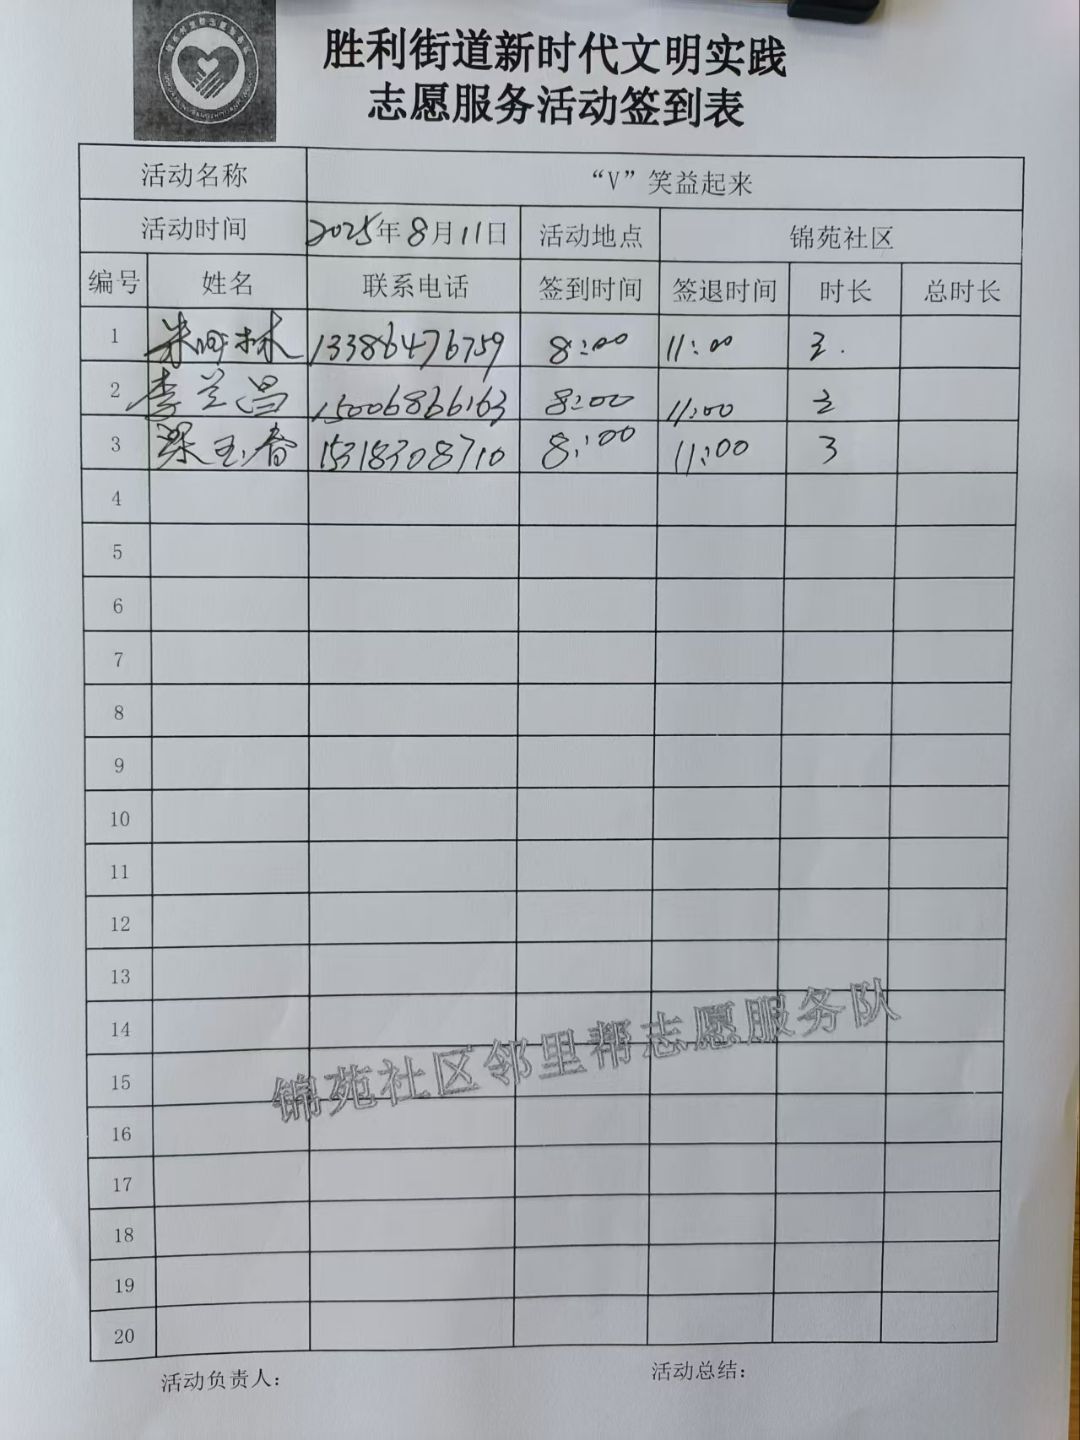 胜利街道新时代文明实践
志愿服务活动签到表
活动名称 “V”笑益起来
活动时间 2025年8月11日 活动地点 锦苑社区
编号 姓名 联系电话 签到时间 签退时间 时长 总时长
1 林 13386476759 8:00 11:00 3.
2 李兰昌 15006866163 8:00 11:00 3
3 梁玉春 15318308710 8:00 11:00 3
4
5
6
7
8
9
10
11
12
13
14
15
16
17
18
19
20
锦苑社区邻里帮志愿服务队
活动负责人： 活动总结：